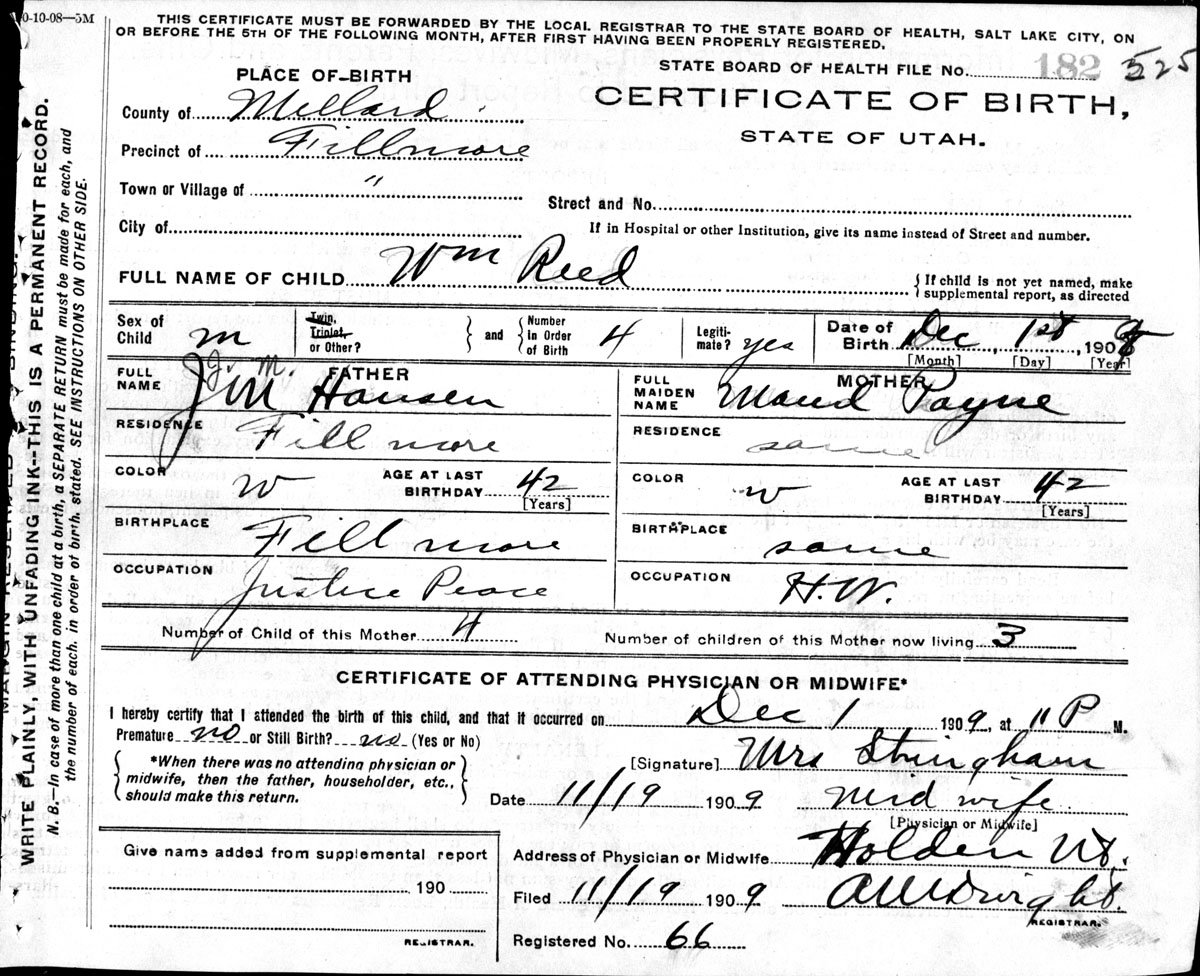 0-10-08—5M
THIS CERTIFICATE MUST BE FORWARDED BY THE LOCAL REGISTRAR TO THE STATE BOARD OF HEALTH, SALT LAKE CITY, ON
OR BEFORE THE 5TH OF THE FOLLOWING MONTH, AFTER FIRST HAVING BEEN PROPERLY REGISTERED.
STATE BOARD OF HEALTH FILE No. 182 525
PLACE OF BIRTH
CERTIFICATE OF BIRTH,
STATE OF UTAH.
County of Millard
Precinct of Fillmore
Town or Village of "
Street and No.
City of
If in Hospital or other Institution, give its name instead of Street and number.
FULL NAME OF CHILD Wm Reed
{If child is not yet named, make
supplemental report, as directed
Sex of Child m
Twin, Triplet, or Other? } and { Number in Order of Birth 4
Legitimate? yes
Date of Birth Dec, 1st, 1908
[Month] [Day] [Year]
FATHER
FULL NAME J. M. Hansen
RESIDENCE Fillmore
COLOR W AGE AT LAST BIRTHDAY 42
[Years]
BIRTHPLACE Fillmore
OCCUPATION Justice Peace
MOTHER
FULL MAIDEN NAME Maud Payne
RESIDENCE same
COLOR w AGE AT LAST BIRTHDAY 42
[Years]
BIRTHPLACE same
OCCUPATION H.W.
Number of Child of this Mother 4 Number of children of this Mother now living 3
CERTIFICATE OF ATTENDING PHYSICIAN OR MIDWIFE*
I hereby certify that I attended the birth of this child, and that it occurred on Dec 1 1909, at 11 P M.
Premature no or Still Birth? no (Yes or No)
{*When there was no attending physician or
midwife, then the father, householder, etc.,
should make this return.}
[Signature] Mrs Stringham
Date 11/19 1909 Mid wife
[Physician or Midwife]
Address of Physician or Midwife Holden Ut.
Filed 11/19 1909
REGISTRAR.
Registered No. 66
Give name added from supplemental report
190
REGISTRAR.
WRITE PLAINLY, WITH UNFADING INK--THIS IS A PERMANENT RECORD.
N. B.—In case of more than one child at a birth, a SEPARATE RETURN must be made for each, and
the number of each, in order of birth, stated. SEE INSTRUCTIONS ON OTHER SIDE.